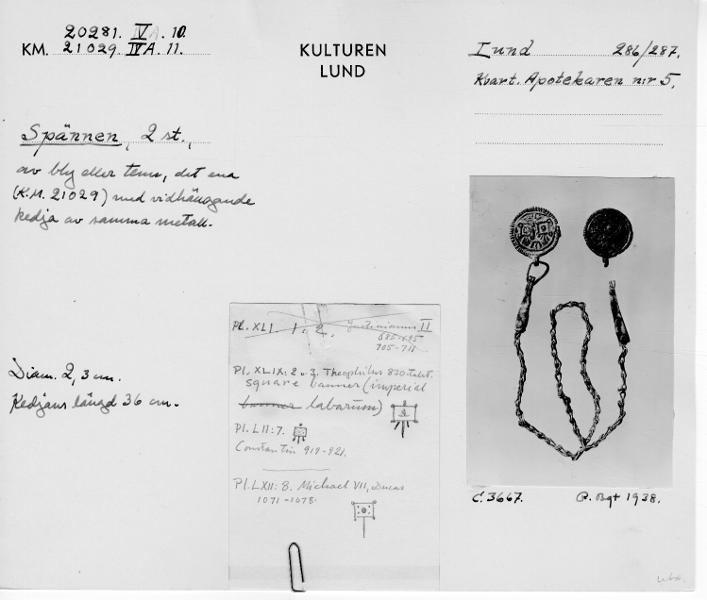 20281. IVA. 10.
KM. 21029. IVA. 11.
KULTUREN
LUND
Lund 286/287.
Kvart. Apotekaren n:r 5.
Spännen, 2 st.,
av bly eller tenn, det ena
(K.M. 21029) med vidhängande
kedja av samma metall.
Diam. 2,3 cm.
Kedjans längd 36 cm.
Pl. XLI. 1: 2. Justinianus II
685-695
705-711
Pl. XLIX: 2 o 3. Theophilus 830-talet.
square banner (imperial
banner labarum)
Pl. LII: 7.
Constantin 919-921.
Pl. LXII: 8. Michael VII, Ducas
1071-1078.
C. 3667. P. Bgt 1938.